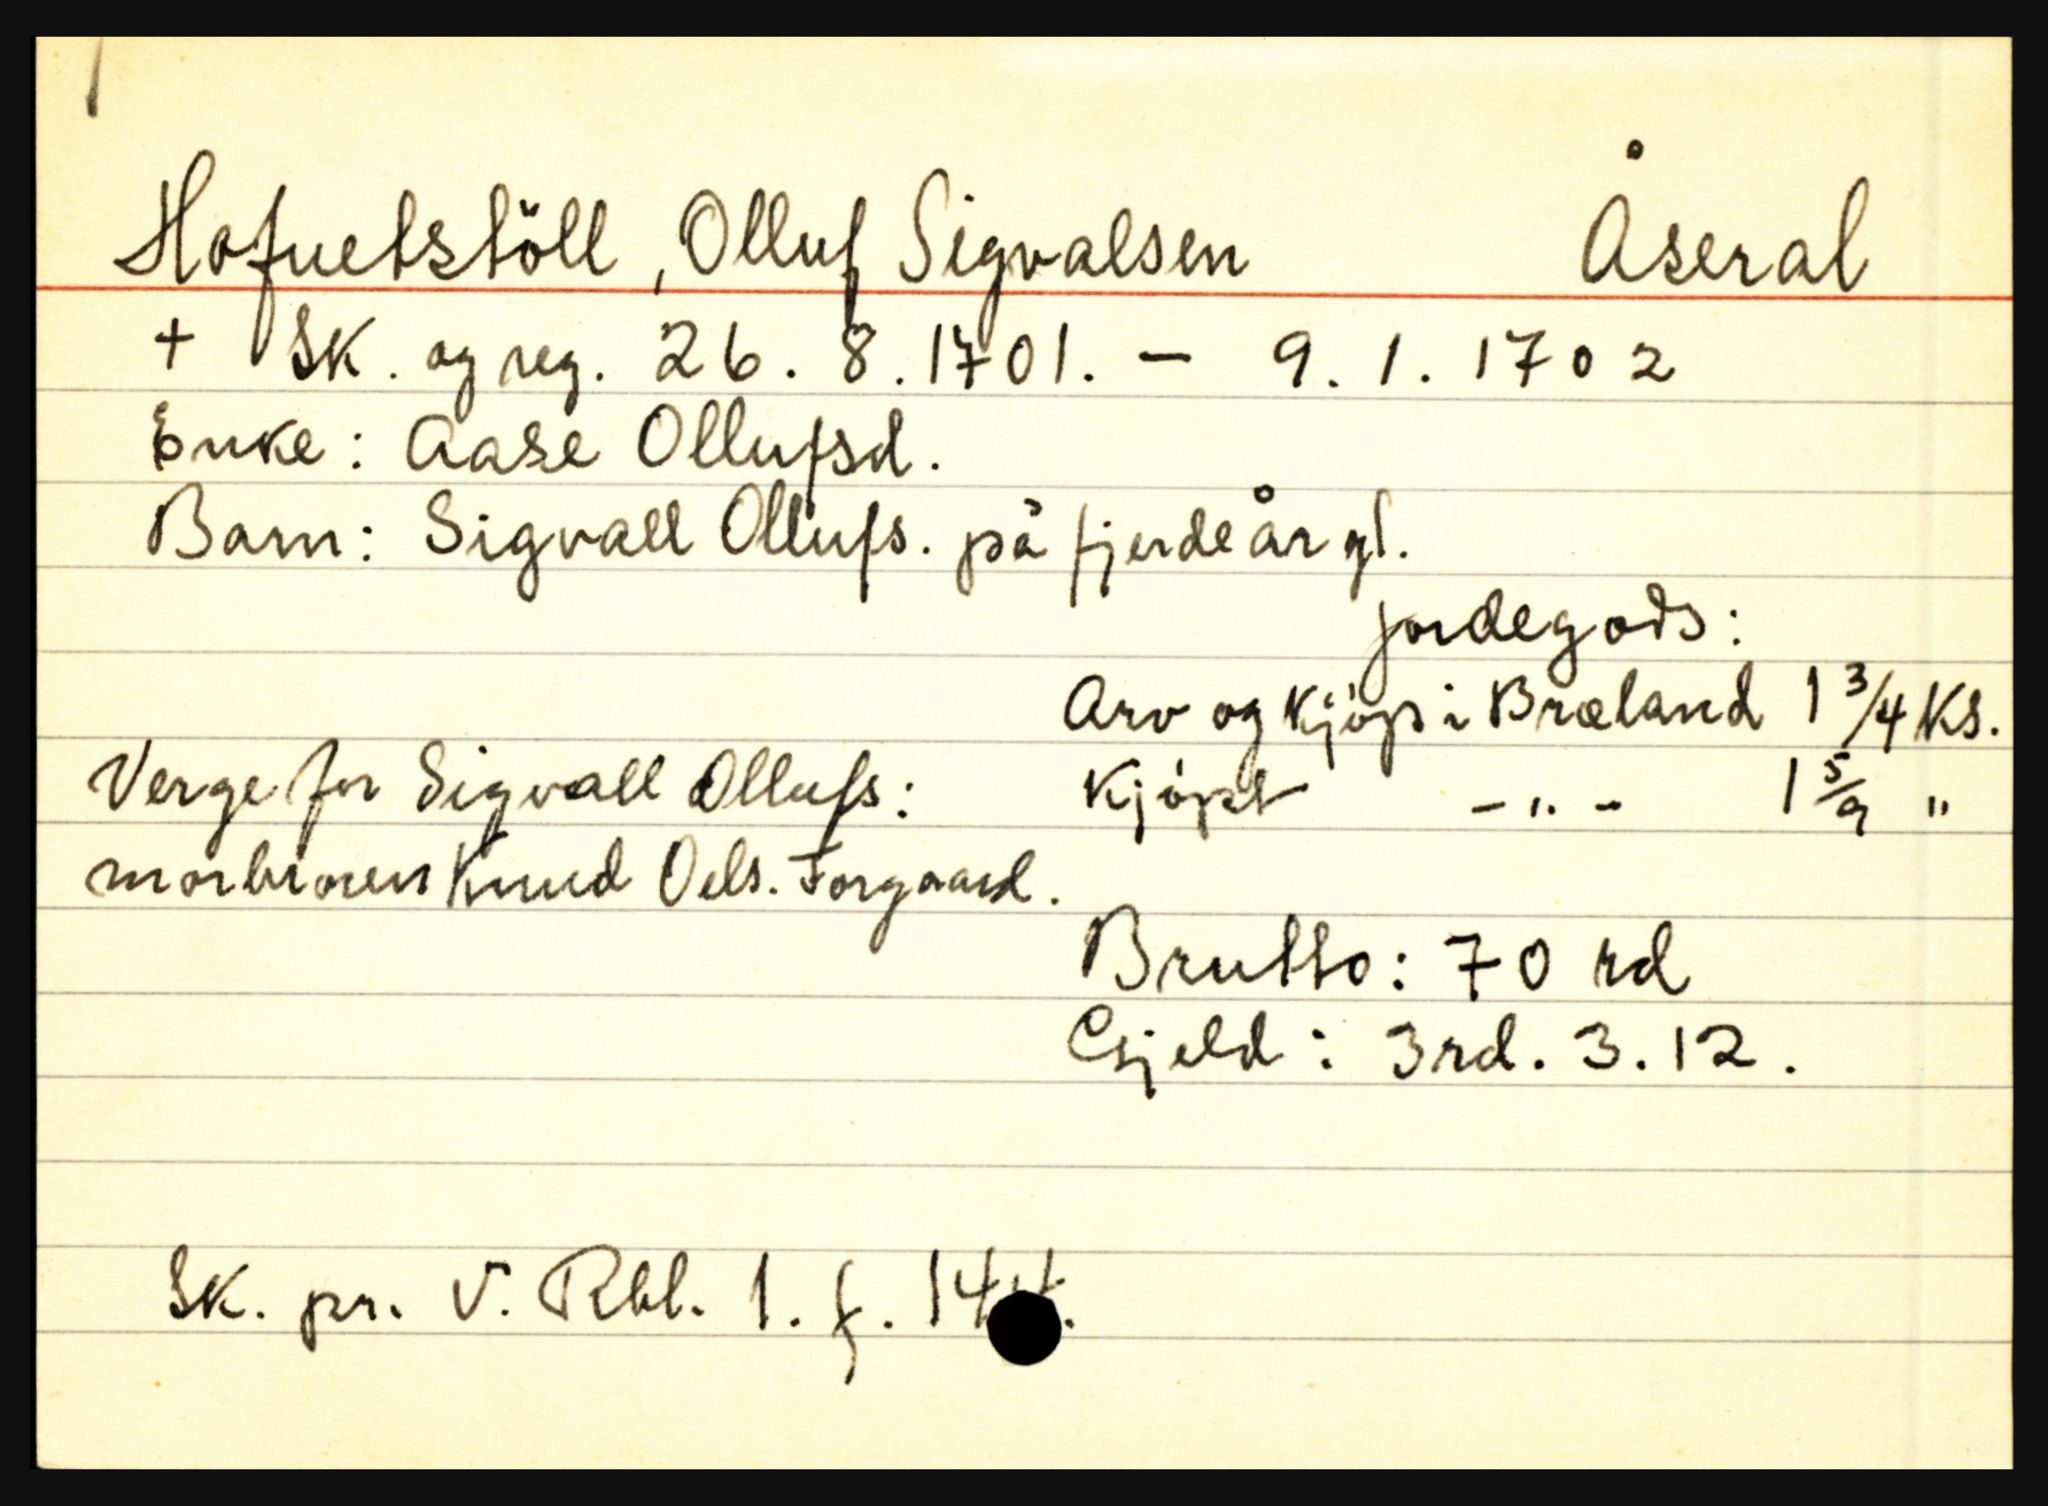 Hofuetstöll, Olluf Sigvalsen Åseral
+ Sk. og reg. 26. 8. 1701. - 9. 1. 1702
Enke: Aase Ollufsd.
Barn: Sigvall Ollufs. på fjerde år gl.
Jordegods:
Arv og kjöp i Bræland 1 3/4 ks.
Verge for Sigvall Ollufs: Kjöpt - " - 1 5/9 "
morbroren Knud Oels. Forgaard.
Brutto: 70 rd
Gjeld: 3 rd. 3. 12.
Sk. pr. V. Rbl. 1. f.